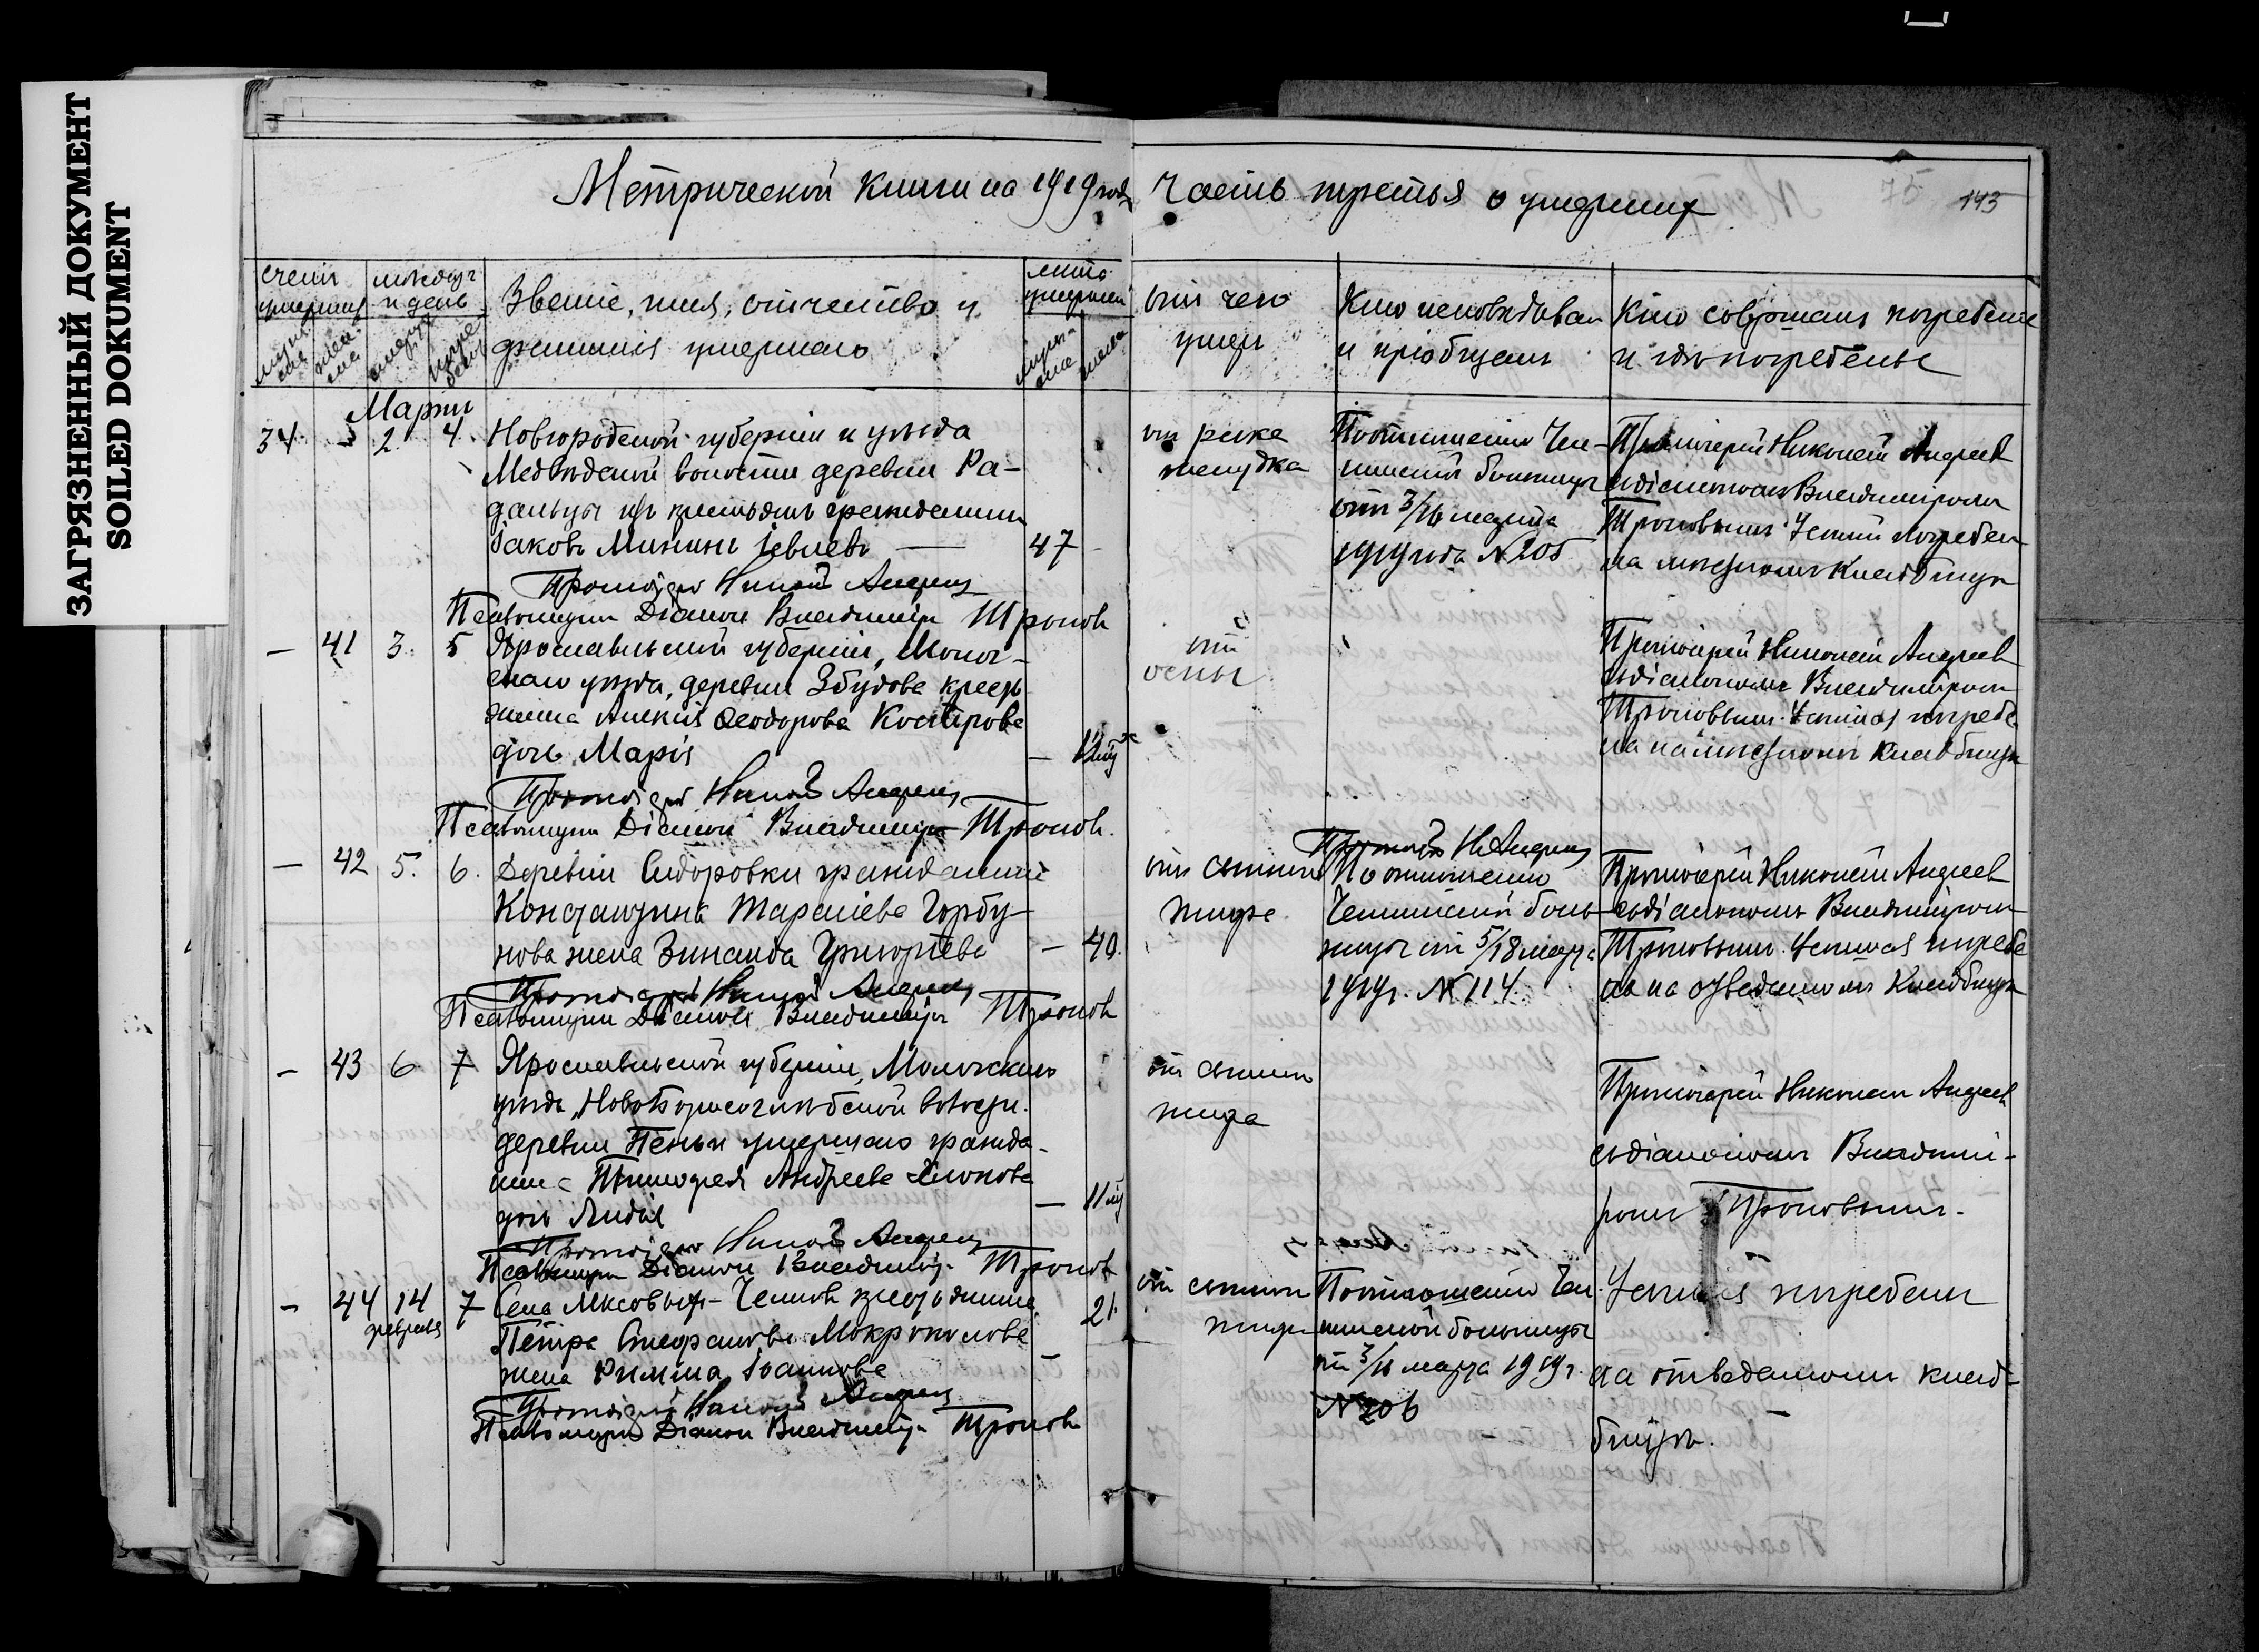 ЗАГРЯЗНЕННЫЙ ДОКУМЕНТ
SOILED DOKUMENT
Метрической книги на 1919 годъ
Часть третья о умершихъ
75
143
счетъ умершихъ
мѣсяцъ и день
Званіе, имя, отчество и
фамилія умершаго
лѣта умершаго
отъ чего
умеръ
Кто исповѣдывалъ
и пріобщалъ
Кто совершалъ погребеніе
и гдѣ погребены
Мартъ
34. - 2. 4. Новгородской губерніи и уѣзда
Медвѣдской волости деревни Ра-
дальцы изъ крестьянъ гражданинъ
Іаковъ Мининъ Іевлевъ — 47 -
Протоіерей Николай Андреев
Псаломщикъ Діаконъ Владиміръ Троповъ
отъ рака
желудка
По отношенію Чел-
больницы
отъ 3/16 марта
1919 года № 205
Протоіерей Николай Андреев
съ діакономъ Владиміромъ
Троповымъ. погребен
на мѣстномъ кладбищѣ
— 41 3. 5 Ярославльской губерніи, Молог-
скаго уѣзда, деревни Збудова кресть
янина Алексія Ѳеодорова Кострова
дочь Марія —
Протоіерей Николай Андреев
Псаломщикъ Діаконъ Владиміръ Троповъ.
отъ
оспы
Протоіерей Николай Андреев
съ діакономъ Владиміромъ
Троповымъ. погребе
на на мѣстномъ кладбищѣ
— 42 5. 6. Деревни Сидоровки гражданина
Константина Тарасіева Горбу-
нова жена Зинаида Григоріева — 40.
Протоіерей Николай Андреев
Псаломщикъ Діаконъ Владиміръ Троповъ
отъ сыпного
тифа
Протоіерей Н. Андреев
По отношенію
боль-
ницы отъ 5/18 марта
1919 г. № 114.
Протоіерей Николай Андреев
съ діакономъ Владиміромъ
Троповымъ. погребе
на на отведенномъ кладбищѣ
— 43 6 7 Ярославльской губерніи, Мологскаго
уѣзда, НовоБорисоглѣбской волости.
деревни Пеньи умершаго гражда-
нина Андреева
дочь Лидія — 11
Протоіерей Николай Андреев
Псаломщикъ Діаконъ Владиміръ Троповъ
отъ сыпного
тифа
Протоіерей Николай Андреев
съ діакономъ Владимі-
ромъ Троповымъ.
— 44 14 7 Села крестьянина 21.
февраля
Петра Стефанова Мокрополова
жена Римма Іоаннова —
Протоіерей Николай Андреев
Псаломщикъ Діаконъ Владиміръ Троповъ
отъ сыпного
тифа
По отношенію Чел-
больницы
отъ 3/16 марта 1919 г.
№ 206
погребены
на отведенномъ клад-
бищѣ.